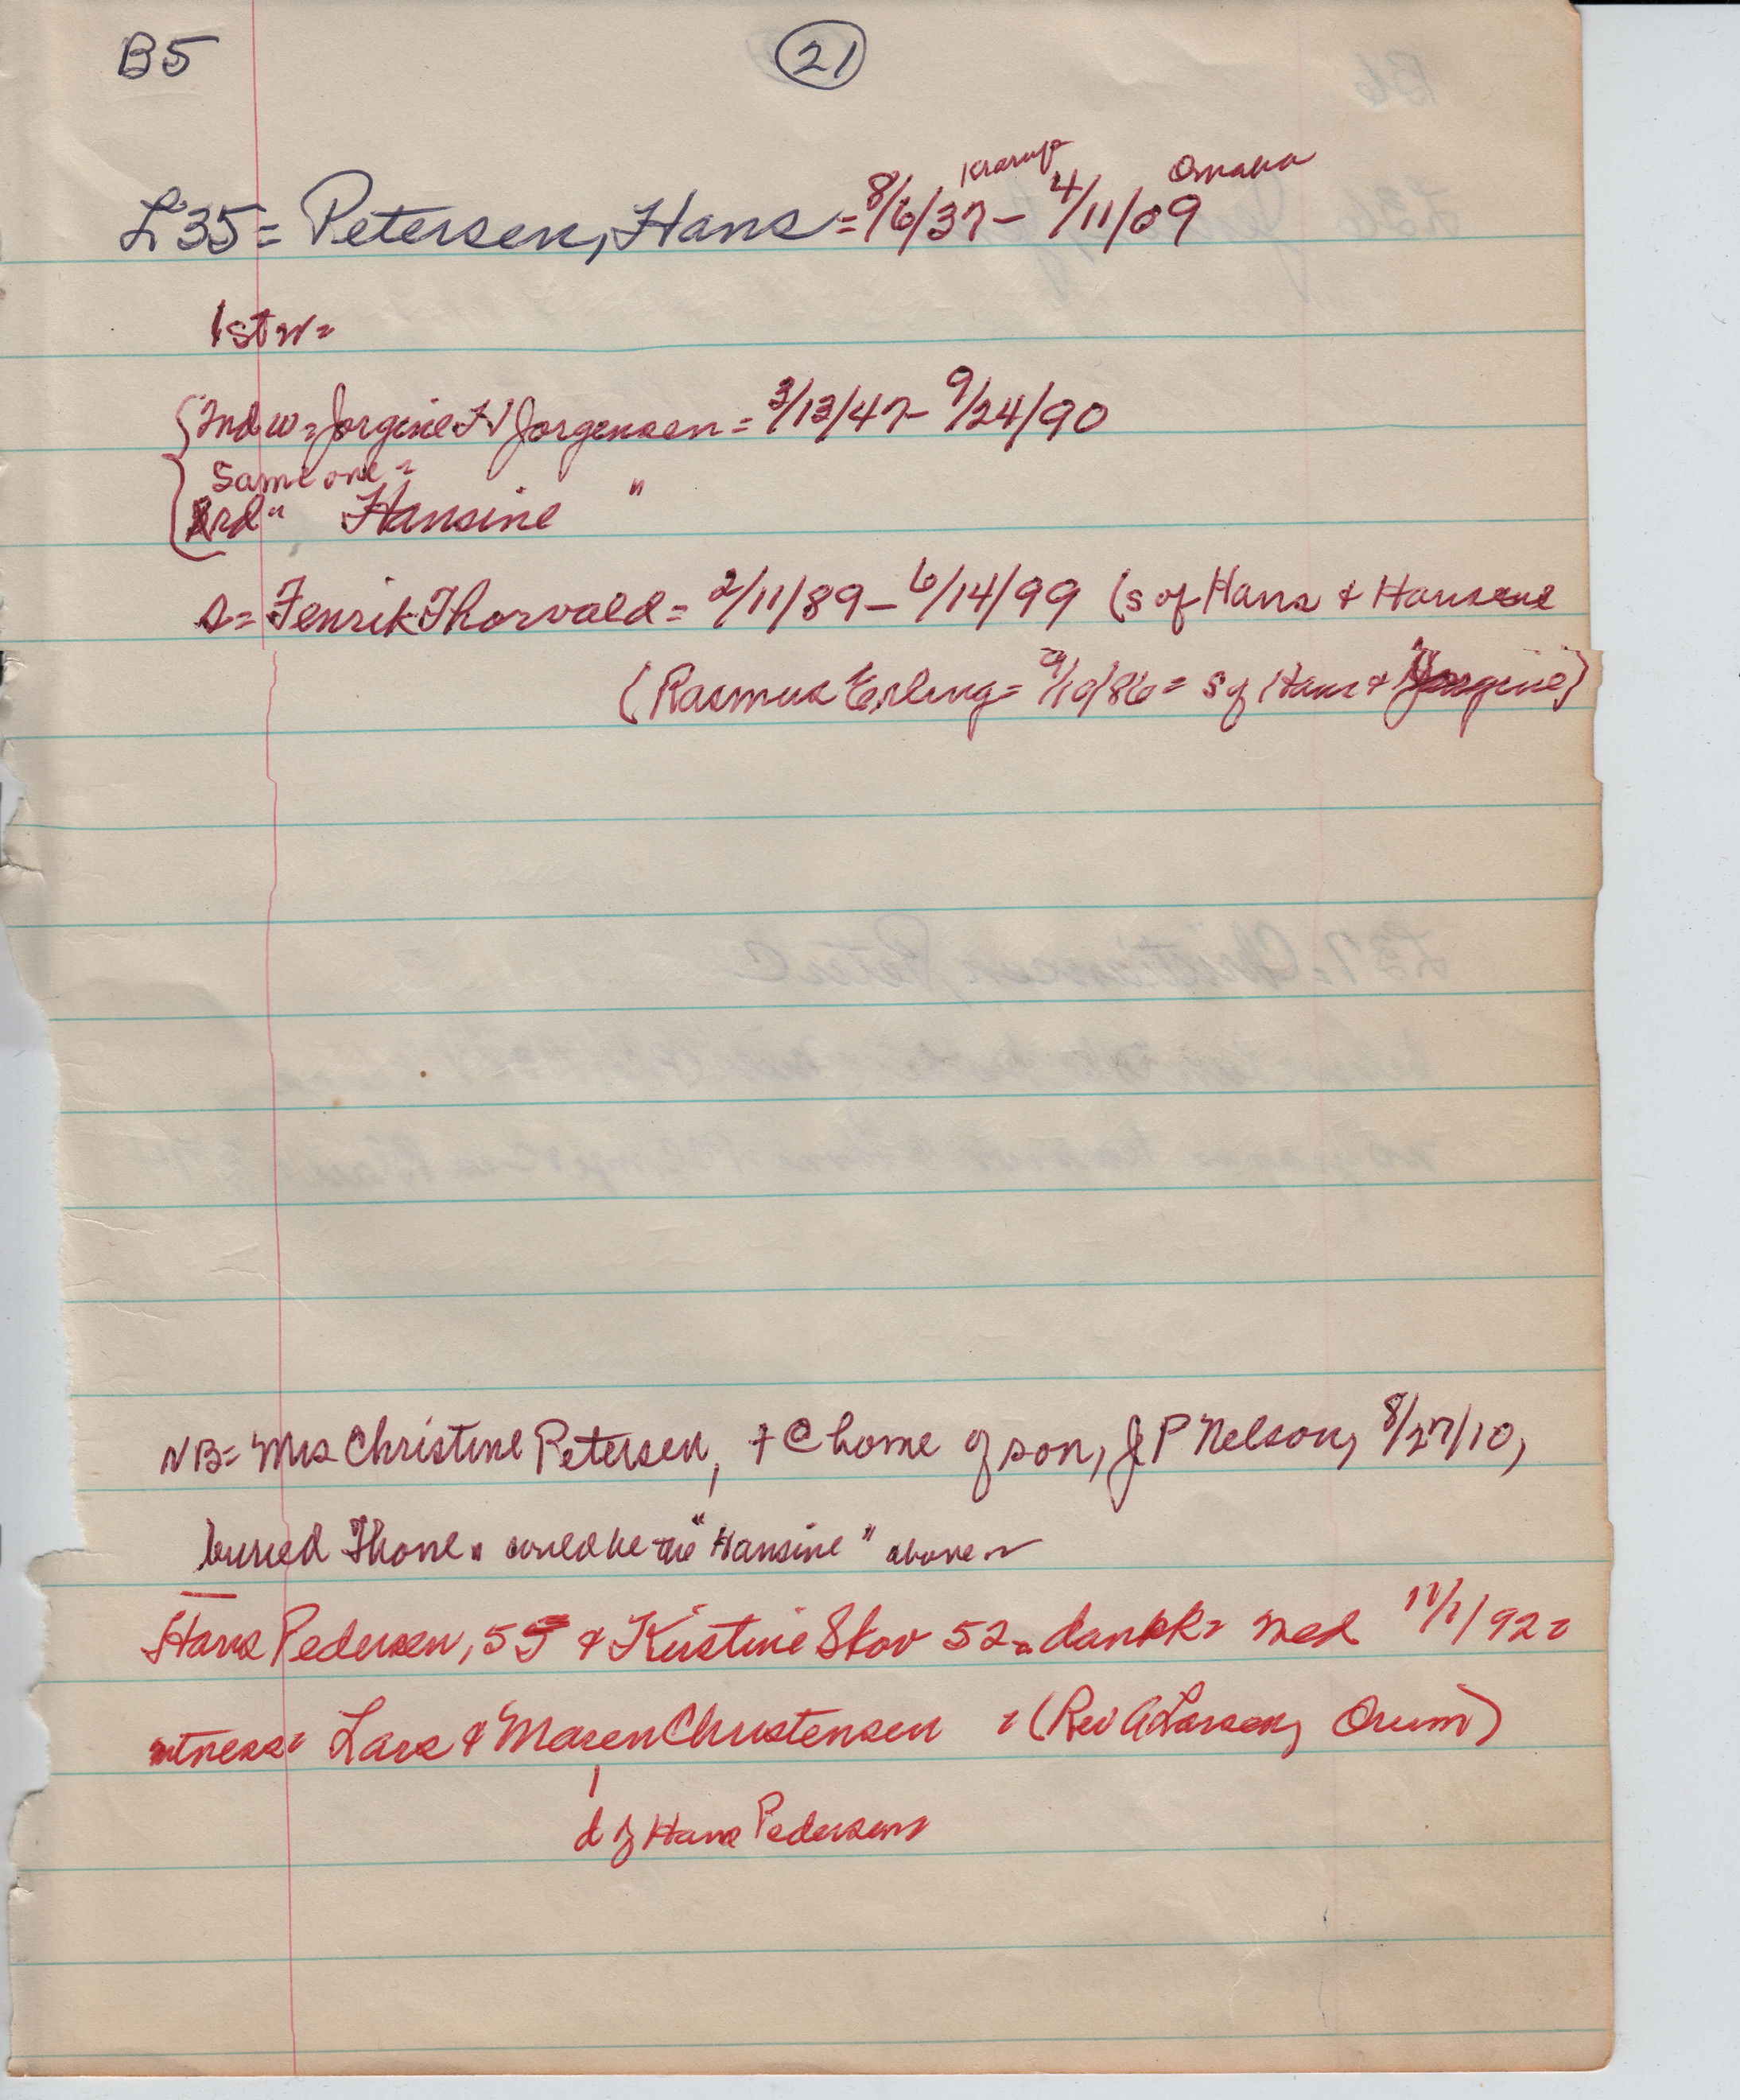 B5
21
Krarup Omaha
L35 = Petersen, Hans = 8/6/37 - 4/11/09
1st w=
2nd w = Jorgine H Jorgensen = 3/13/47 - 9/24/90
Same one =
3rd " Hansine "
s = Fenrik Thorvald = 2/11/89 - 6/14/99 (s of Hans & Hansine
(Rasmus Erling = 9/10/86 = s of Hans & Jorgine)
NB = Mrs Christine Petersen, + @ home of son, J P Nelson, 8/27/10,
buried could be the "Hansine" above
Hans Pedersen, 55 & Kirstine Skov 52 = dankk = med 11/1/92 =
witness = Lars & Maren Christensen = (Rev A Larsen, Orum)
d of Hans Pedersen